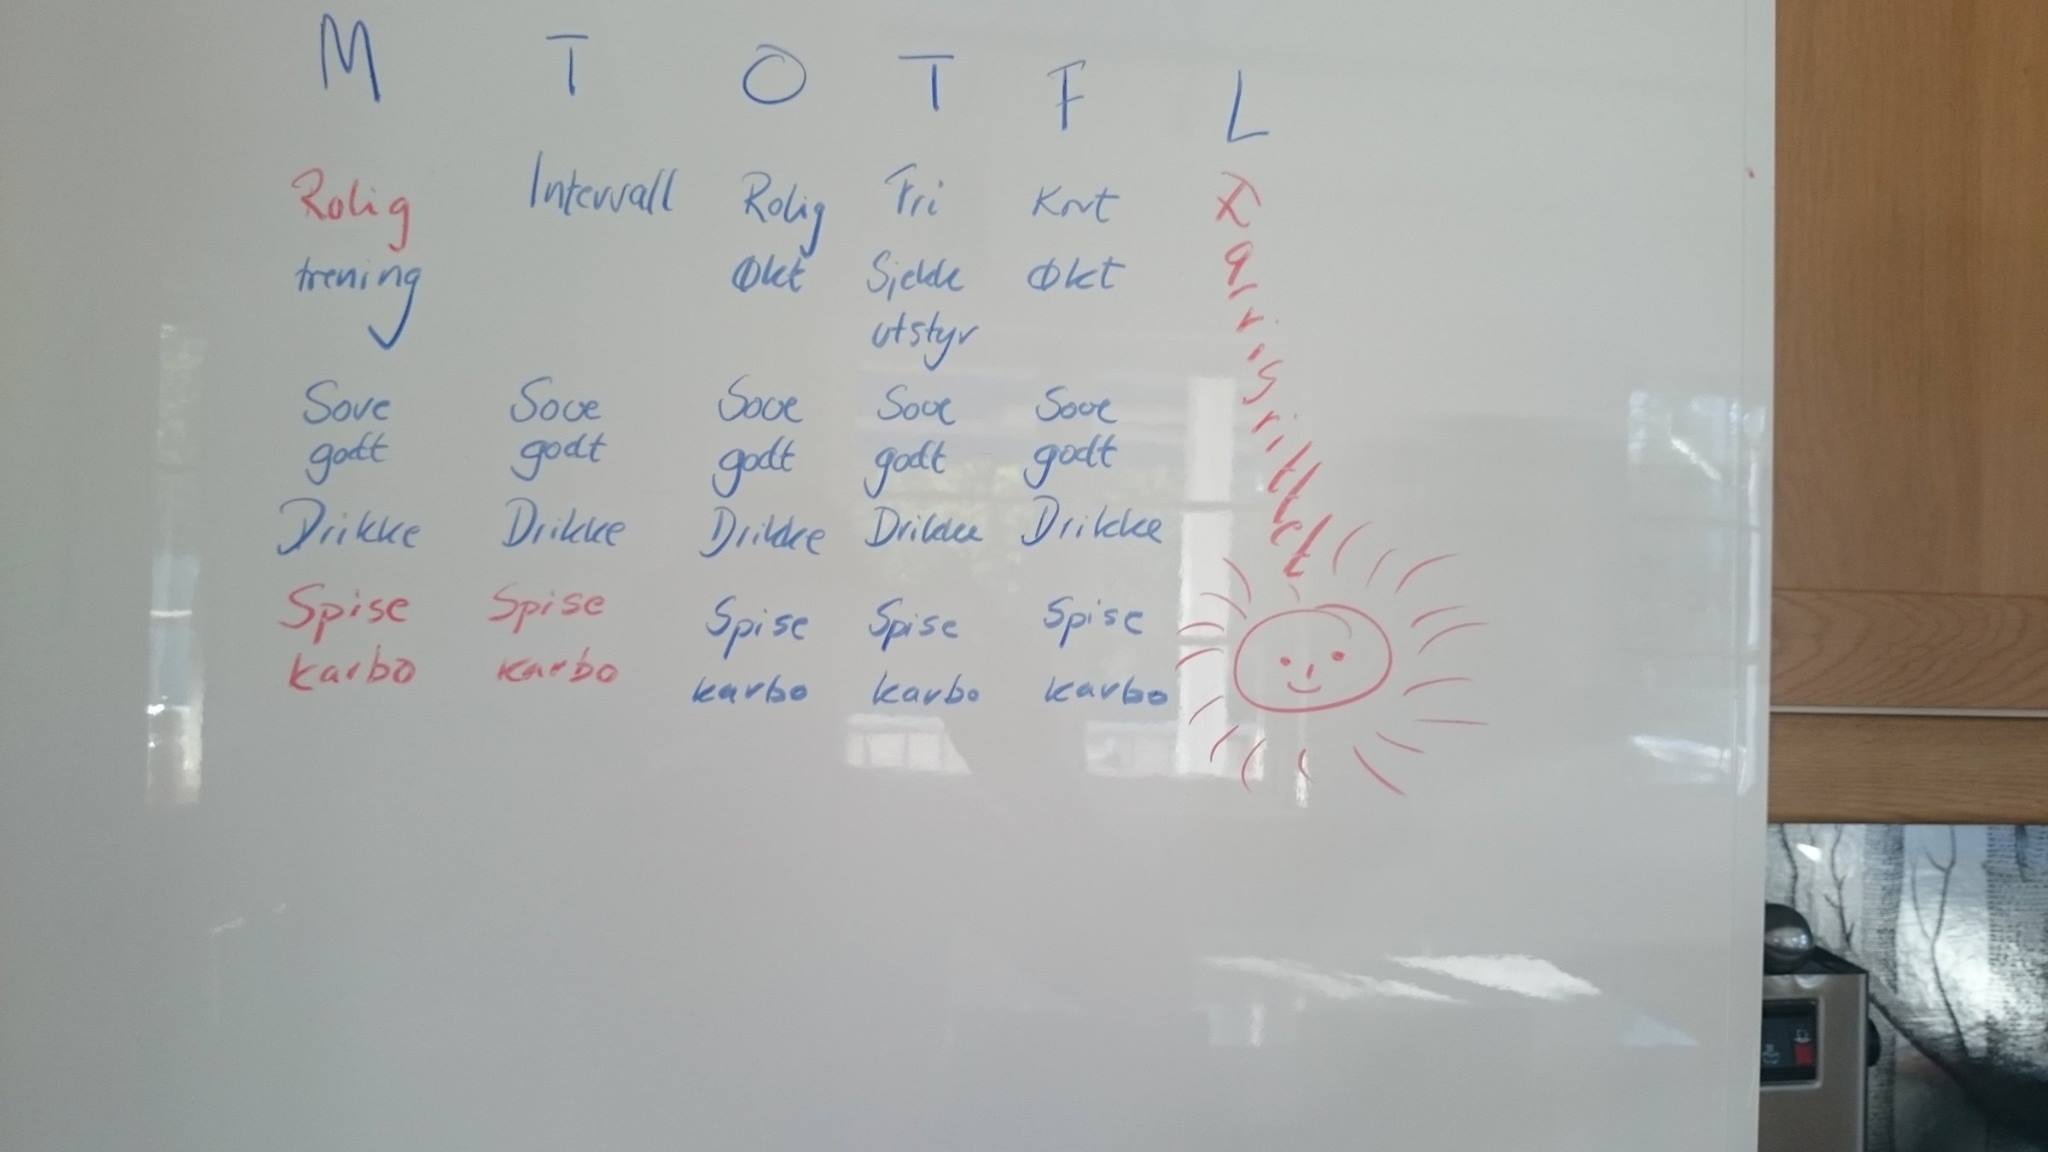 M T O T F L
Rolig Intervall Rolig Fri Kort
trening Økt Sjekke Økt
utstyr
Sove Sove Sove Sove Sove
godt godt godt godt godt
Drikke Drikke Drikke Drikke Drikke
Spise Spise Spise Spise Spise
karbo karbo karbo karbo karbo